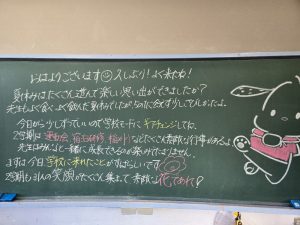 おはようございます 久しぶり！よく来たね！
夏休みはたくさん遊んで楽しい思い出ができましたか？
先生もよく食べよく飲んだ夏休みでしたが
今日から少しずつでいいので学校モードにギアチェンジしてね。
2学期は運動会、宿泊研修、などたくさん素敵な行事があるよ
先生はみんなと一緒に成長できるのが楽しみでなりません。
まずは今日学校に来れたことがすばらしいです
2学期も34人の笑顔がたくさん集まって素敵な花であれ